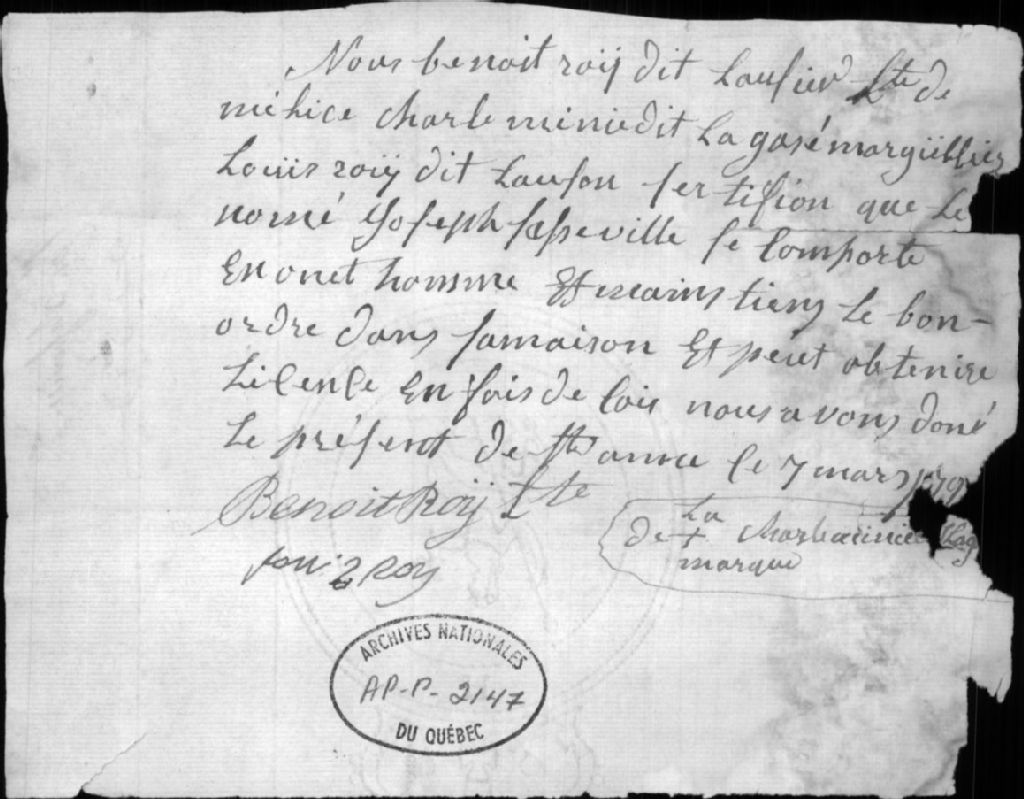 Nous benoit roÿ dit Lausier Lte de
milice charle miniedit La gasé margüillier
Loüis roÿ dit Lauson sertifion que Le
nomé Joseph sasseville se Comporte
En onet homme Et mains tiens Le bon-
ordre dans samaison Et peut obtenire
LiCenCe En fois de Cois nous avons doné
Le présent de ste anne Ce 7 mars 179
Benoit Roÿ Lte
La
de + Charle minie Lag
marque
Roy
ARCHIVES NATIONALES
AP-P-2147
DU QUÉBEC